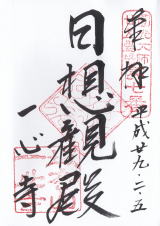 奉拝
平成廿九、二、五
日想観殿
一心寺